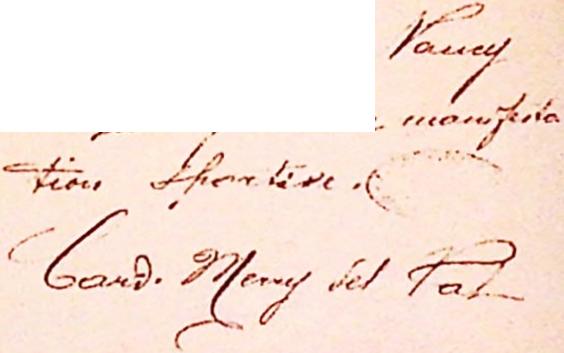 Nancy
manifesta
tion Sportive.
Card. Merry del Val